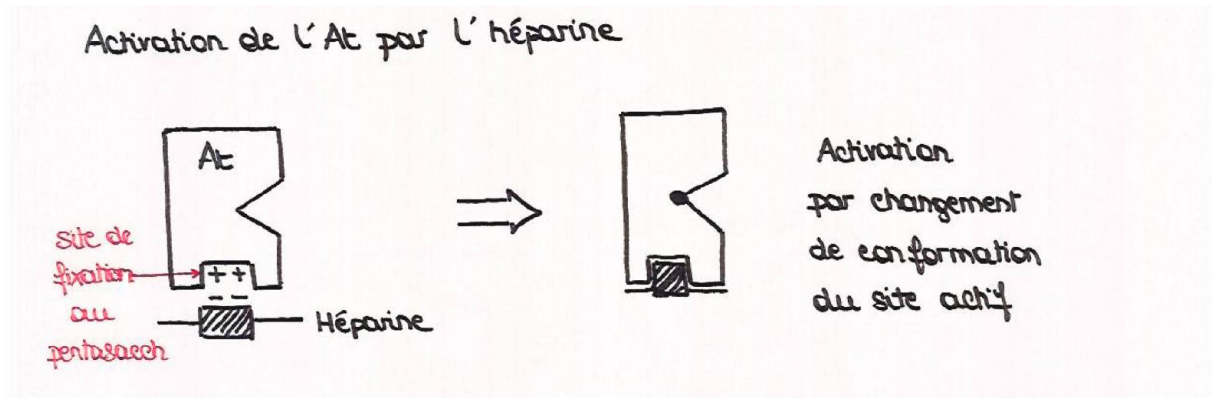 Activation de l'At par l'héparine
At
site de
fixation
au
pentasacch
+ +
- -
Héparine
Activation
par changement
de conformation
du site actif